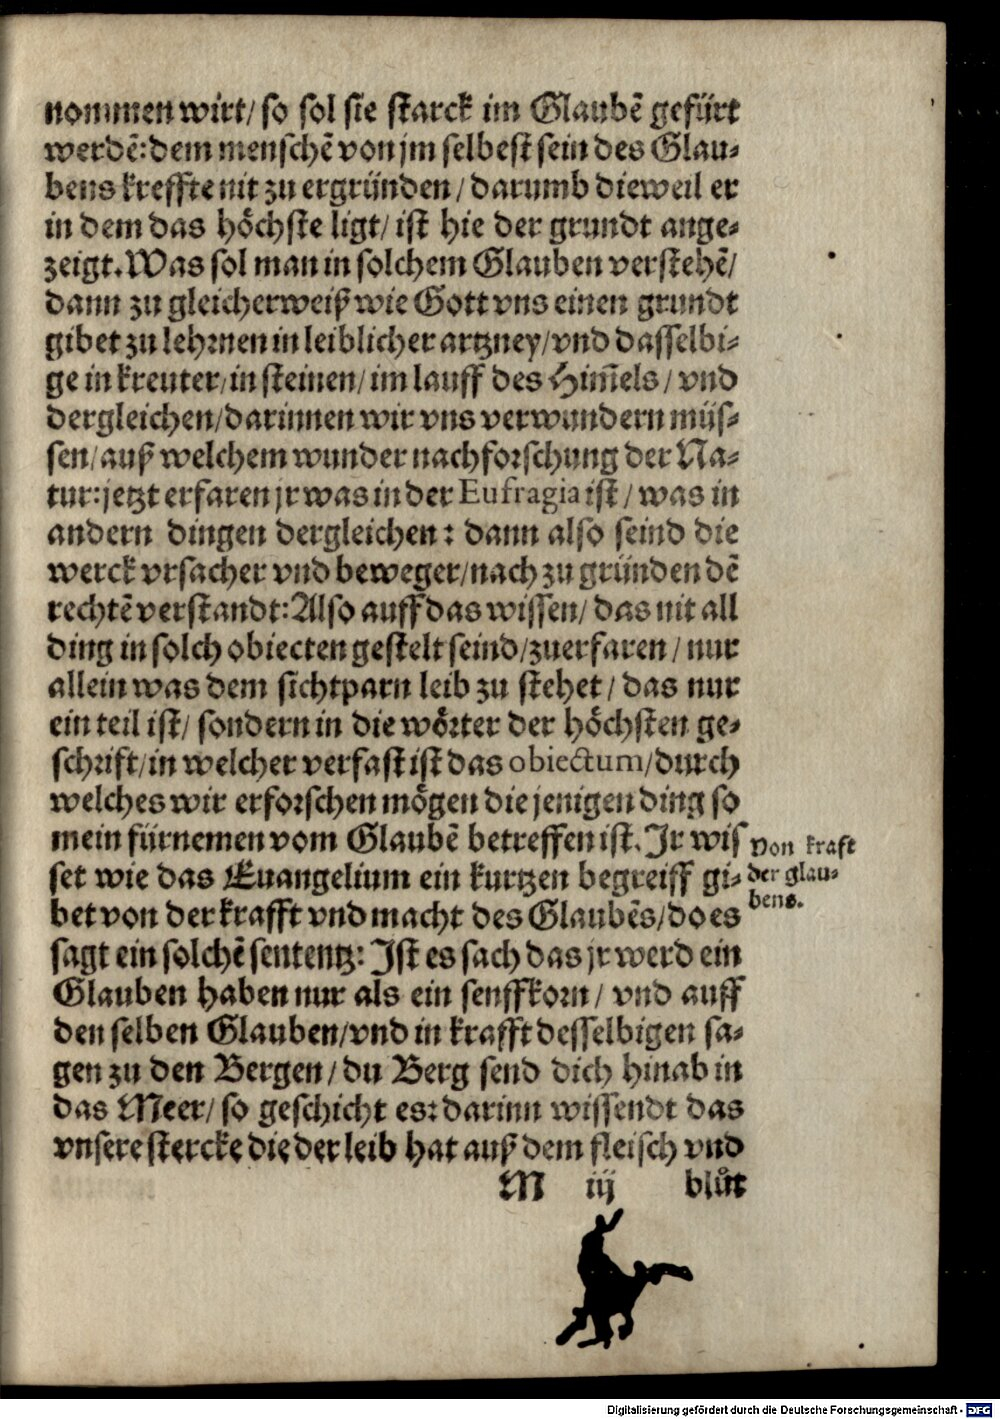 nommen wirt/ so sol sie starck im Glaubē gefürt
werdē: dem menschē von jm selbest sein des Glau⸗
bens kreffte nit zu ergründen/ darumb dieweil er
in dem das höchste ligt/ ist hie der grundt ange⸗
zeigt. Was sol man in solchem Glauben verstehē/
dann zu gleicherweiß wie Gott vns einen grundt
gibet zu lehrnen in leiblicher artzney/ vnd dasselbi⸗
ge in kreuter/ in steinen/ im lauff des Him̄els/ vnd
dergleichen/ darinnen wir vns verwundern müs⸗
sen/ auß welchem wunder nachforschung der Na⸗
tur: jetzt erfaren jr was in der Eufragia ist/ was in
andern dingen dergleichen: dann also seind die
werck vrsacher vnd beweger/ nach zu gründen dē
rechtē verstandt: Also auff das wissen/ das nit all
ding in solch obiecten gestelt seind/ zuerfaren/ nur
allein was dem sichtparn leib zu stehet/ das nur
ein teil ist/ sondern in die wörter der höchsten ge⸗
schrift/ in welcher verfast ist das obiectum/ durch
welches wir erforschen mögen die jenigen ding so
mein fürnemen vom Glaubē betreffen ist. Jr wis
set wie das Euangelium ein kurtzen begreiff gi⸗
bet von der krafft vnd macht des Glaubēs/ do es
sagt ein solchē sententz: Jst es sach das jr werd ein
Glauben haben nur als ein senffkorn/ vnd auff
den selben Glauben/ vnd in krafft desselbigen sa⸗
gen zu den Bergen/ du Berg send dich hinab in
das Meer/ so geschicht es: darinn wissendt das
vnsere stercke die der leib hat auß dem fleisch vnd
M iij blůt
Von kraft
der glau⸗
bens.
Digitalisierung gefördert durch die Deutsche Forschungsgemeinschaft - DFG